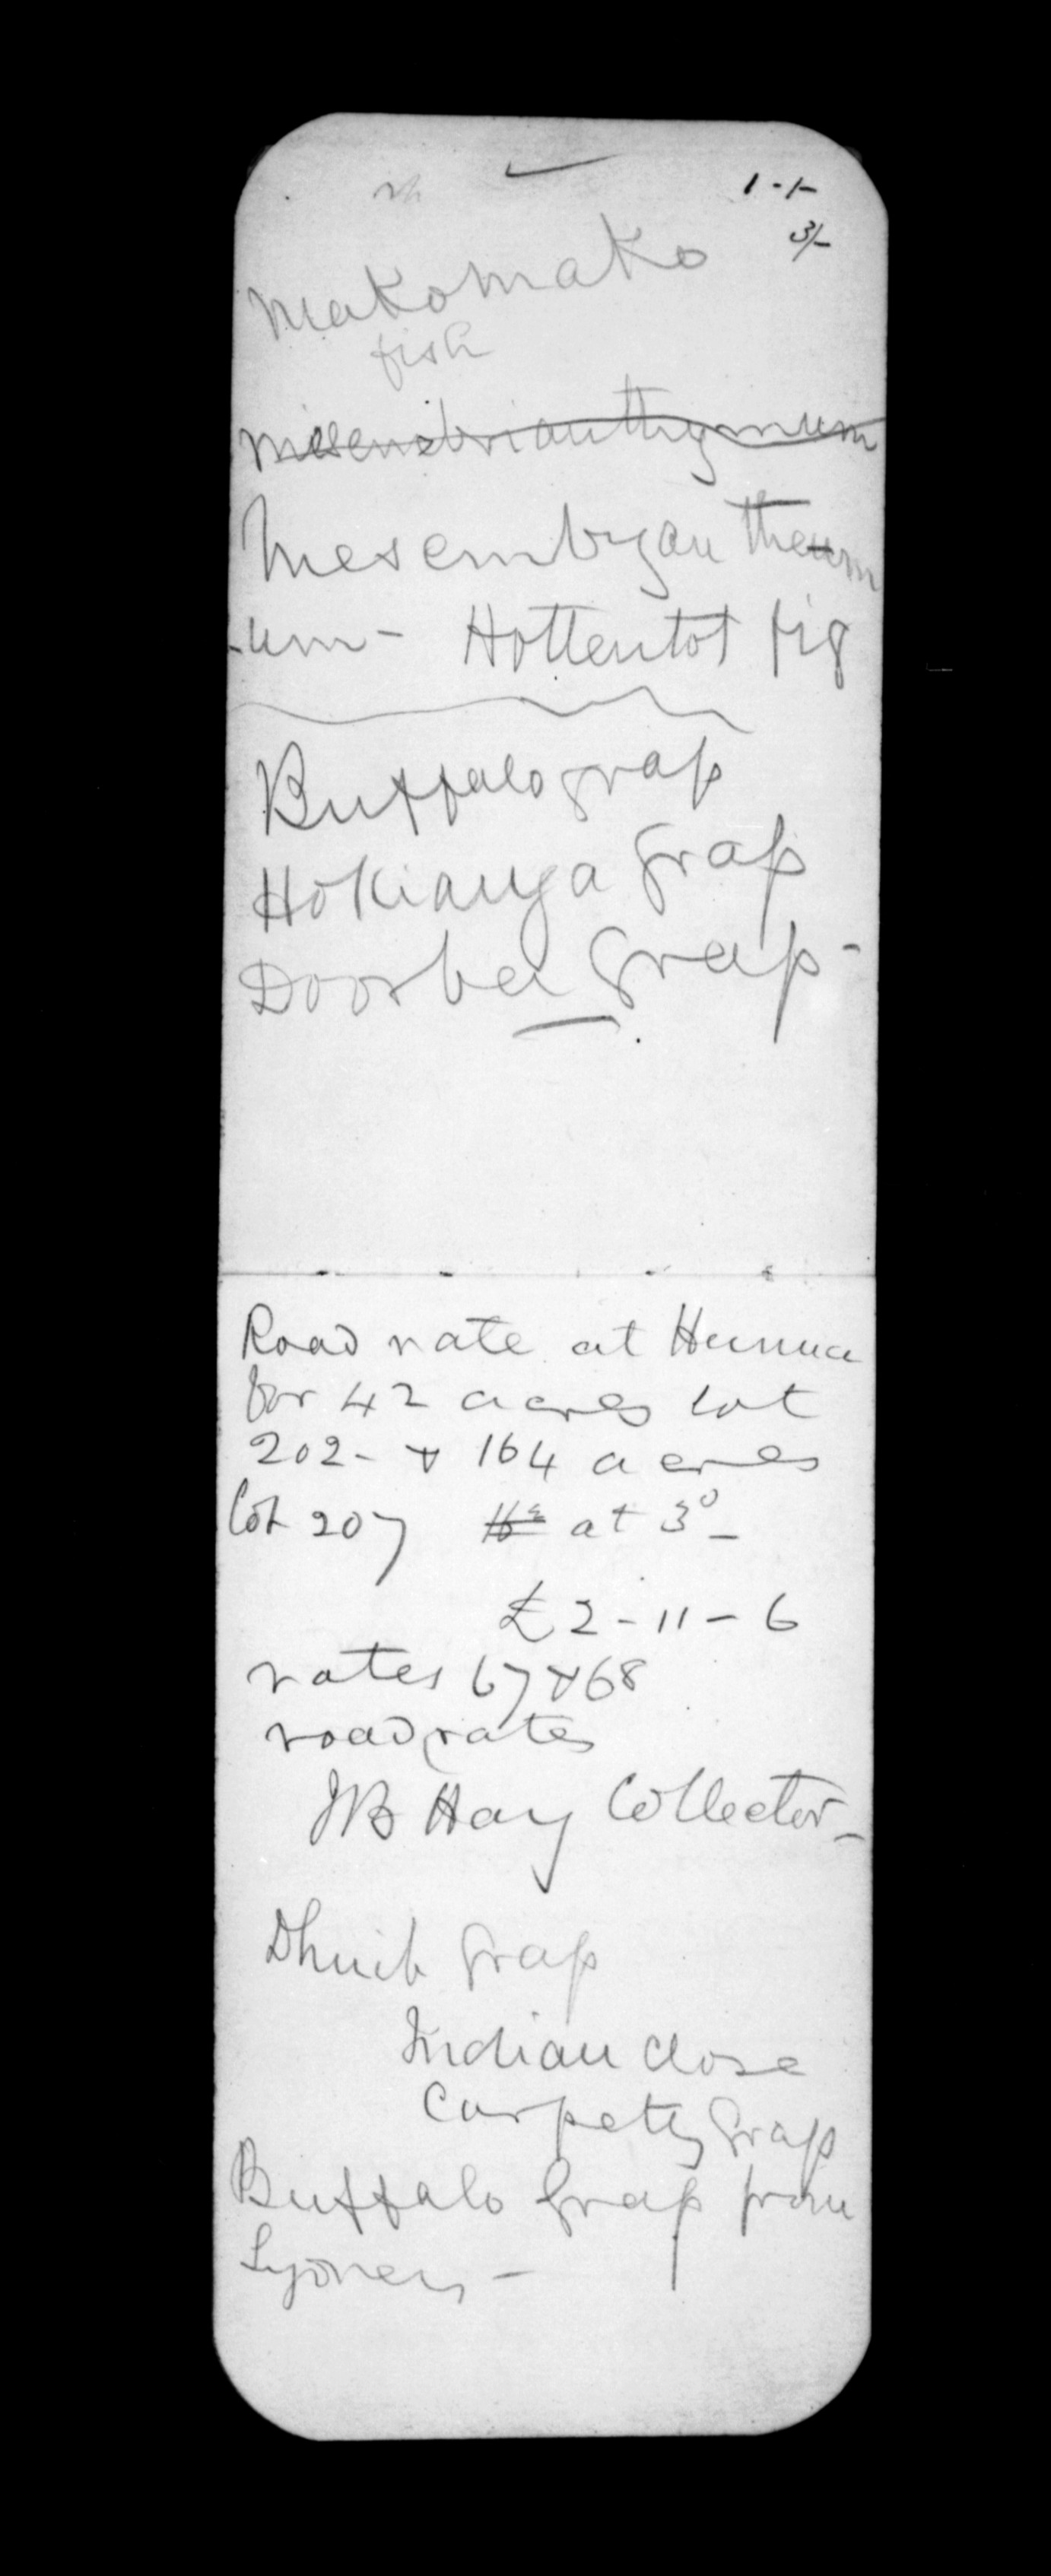 1-1-
3/-
Makomako
fish
mesembrianthymum
Mesembryantheum
-um - Hottentot fig
Buffalo grass
Hokianga grass
Doorba grass -
Road rate at Hunua
for 42 acres lot
202 - & 164 acres
Lot 207 at 3d -
£2-11-6
rates 67 & 68
road rates
JB Hay Collector -
Dhuib Grass
Indian close
carpety Grass
Buffalo Grass from
Sydney -